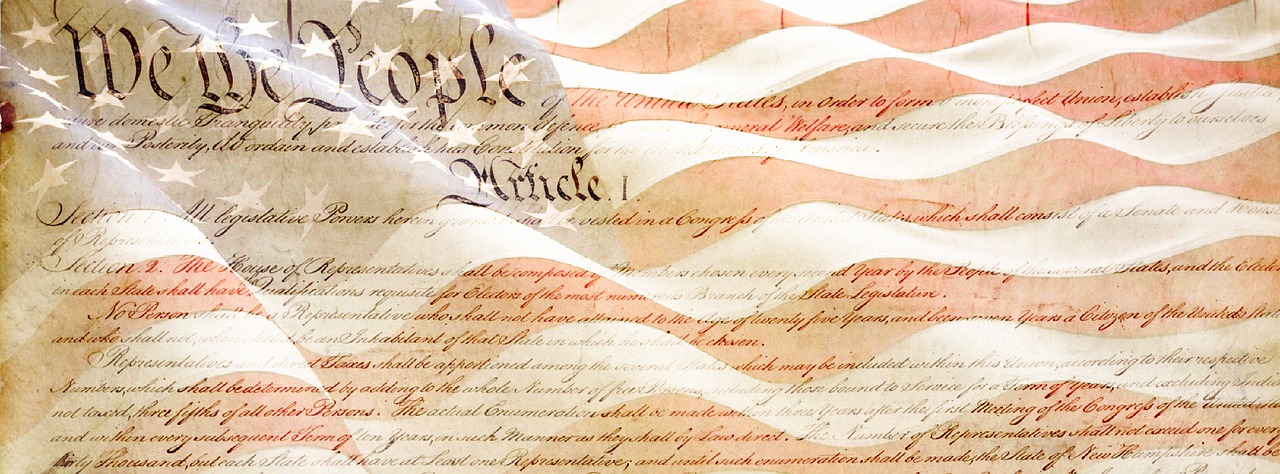 We the People
of the United States, in Order to form a more perfect Union, establish Justice
domestic Tranquility, for the common defence general Welfare, and secure the Blessings of Liberty to ourselves
and our Posterity, do ordain and establish this Constitution for the United States of America.
Article. I.
Section. 1. All legislative Powers herein granted shall be vested in a Congress of the United States, which shall consist of a Senate and House
of Representatives.
Section. 2. The House of Representatives shall be composed of Members chosen every second Year by the People of the several States, and the Elect
in each State shall have Qualifications requisite for Electors of the most numerous Branch of the State Legislature.
No Person shall be a Representative who shall not have attained to the Age of twenty five Years, and been seven Years a Citizen of the United Stat
and who shall not, when elected, be an Inhabitant of that State in which he shall be chosen.
Representatives and direct Taxes shall be apportioned among the several States which may be included within this Union, according to their respective
Numbers, which shall be determined by adding to the whole Number of free Persons, including those bound to Service for a Term of Years, and excluding India
not taxed, three fifths of all other Persons. The actual Enumeration shall be made within three Years after the first Meeting of the Congress of the United Sta
and within every subsequent Term of ten Years, in such Manner as they shall by Law direct. The Number of Representatives shall not exceed one for every
thirty Thousand, but each State shall have at Least one Representative; and until such enumeration shall be made, the State of New Hampshire shall be